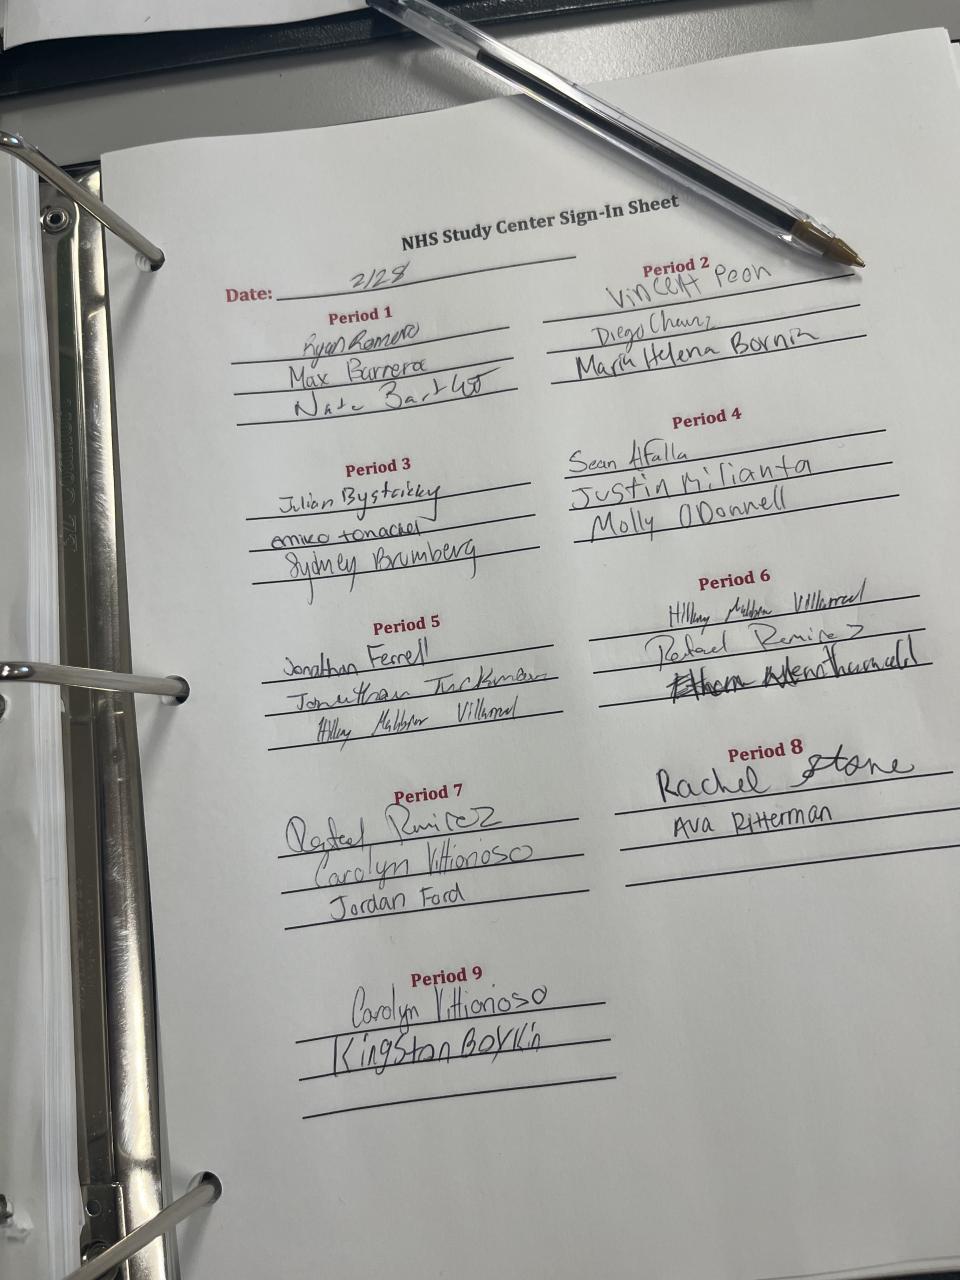 NHS Study Center Sign-In Sheet
Date: 2/28
Period 1
Ryan Romero
Max Barrera
Nate Bartlett
Period 2
Vincent Peon
Diego
Maria Helena
Period 3
Julian Bystricky
emiko tonachel
Sydney Brumberg
Period 4
Sean Alfalla
Justin Milianta
Molly ODonnell
Period 5
Jonathan Ferrell
Jonathan Tuckman
Hillary Villarreal
Period 6
Hillary Villarreal
Rafael Ramirez
Period 7
Rafael Ramirez
Carolyn Vittorioso
Jordan Ford
Period 8
Rachel Stone
Ava Ritterman
Period 9
Carolyn Vittorioso
Kingston Boykin